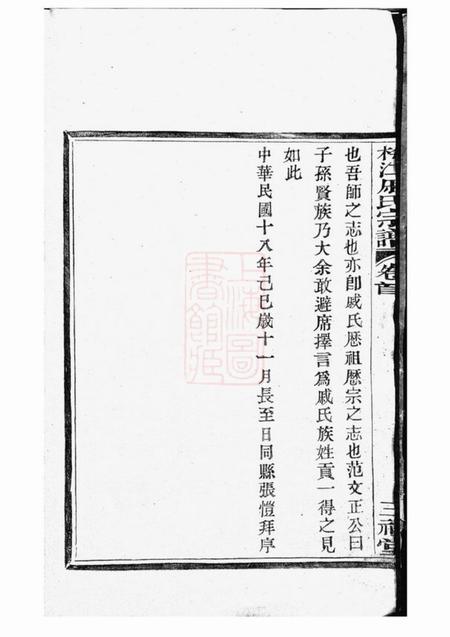 梅江戚氏宗譜 卷首 三禮堂
也吾師之志也亦卽戚氏厯祖厯宗之志也范文正公曰
子孫賢族乃大余敢避席擇言爲戚氏族姓貢一得之見
如此
中華民國十八年己巳歲十一月長至日同縣張愷拜序
上海圖
書館藏